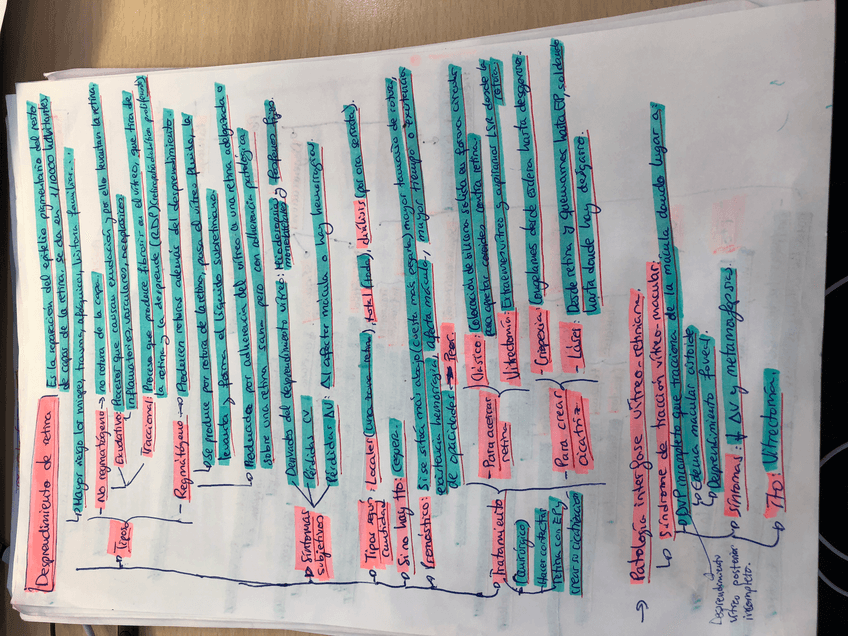 Desprendimiento de retina
Es la separación del epitelio pigmentario del resto
de capas de la retina. Se da en 1/10000 habitantes
Mayor riego los miopes, trauma, afáquicos, historia familiar...
Tipos
- No regmatógeno → no rotura de la capa.
Exudativo: Procesos que causan exudación y por ello levantan la retina.
inflamatorios, vasculares, neoplásicos
Traccional: Proceso que produce fibrosis en el vítreo, que tira de
la retina y la desprende (RDP (retinopatía diabética proliferante))
- Regmatógeno → Producen roturas además del desprendimiento.
Se produce por rotura de la retina, pasa el vítreo fluido, la
levanta y forma el líquido subretiniano.
Producidos por adherencia del vítreo a una retina delgada o
sobre una retina sana pero con adhesión patológica
Síntomas
subjetivos
Derivado del desprendimiento vítreo: Miodesopsias y fosfenos fijos
Pérdidas CV
Pérdidas AV: Al afectar mácula o hay hemorragias
Tipos según
cantidad
: Locales (una zona), total (toda), diálisis (por ora serrata).
Si no hay tto: Ceguera.
Pronóstico: Si se sitúa más abajo (cuesta más operar), mayor tamaño de rotura,
existencia hemorragia, afecta mácula, mayor tiempo o existencia
de opacidades → Peor
Tratamiento
Quirúrgico
Hacer contactar
retina con EP y
crear su cicatrización
- Para acercar
retina
Clásico: Colocación de silicona sólida en forma circular
para apretar coroides contra retina.
Vitrectomía: Extraemos vítreo y aspiramos LSR desde la
rotura
- Para crear
cicatriz
- Criopexia: Congelamos desde esclera hasta desgarro.
- Láser: Desde retina y quemamos hasta EP, soldando
hasta donde hay desgarro.
→ Patología interfase vítreo-retiniana.
Síndrome de tracción vítreo-macular.
DVP incompleto que tracciona de la mácula dando lugar a:
Edema macular cistoide
Desprendimiento foveal.
Desprendimiento
vítreo posterior
incompleto.
Síntomas: ↓ AV y metamorfopsias.
Tto: Vitrectomía.